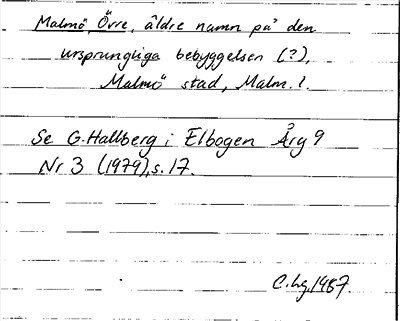 Malmö, Övre, äldre namn på den
ursprungliga bebyggelsen (?),
Malmö stad, Malm. l.
Se G. Hallberg i Elbogen Årg 9
Nr 3 (1979), s. 17.
C. hg. 1987.